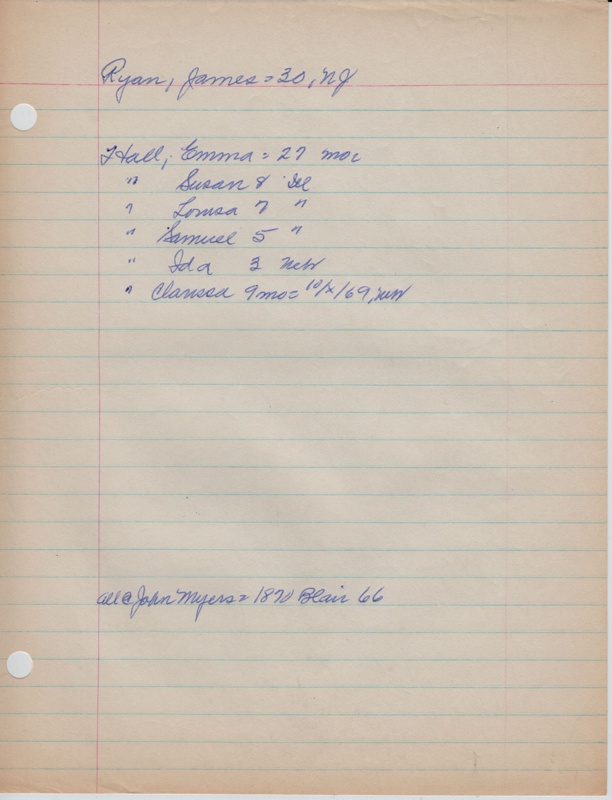 Ryan, James = 30, NJ
Hall, Emma = 27 mo
" Susan 8 Ill
" Louisa 7 "
" Samuel 5 "
" Ida 3 Neb
" Clarissa 9 mo = 10/x/69, neb
all @ John Myers = 1870 Blair 66